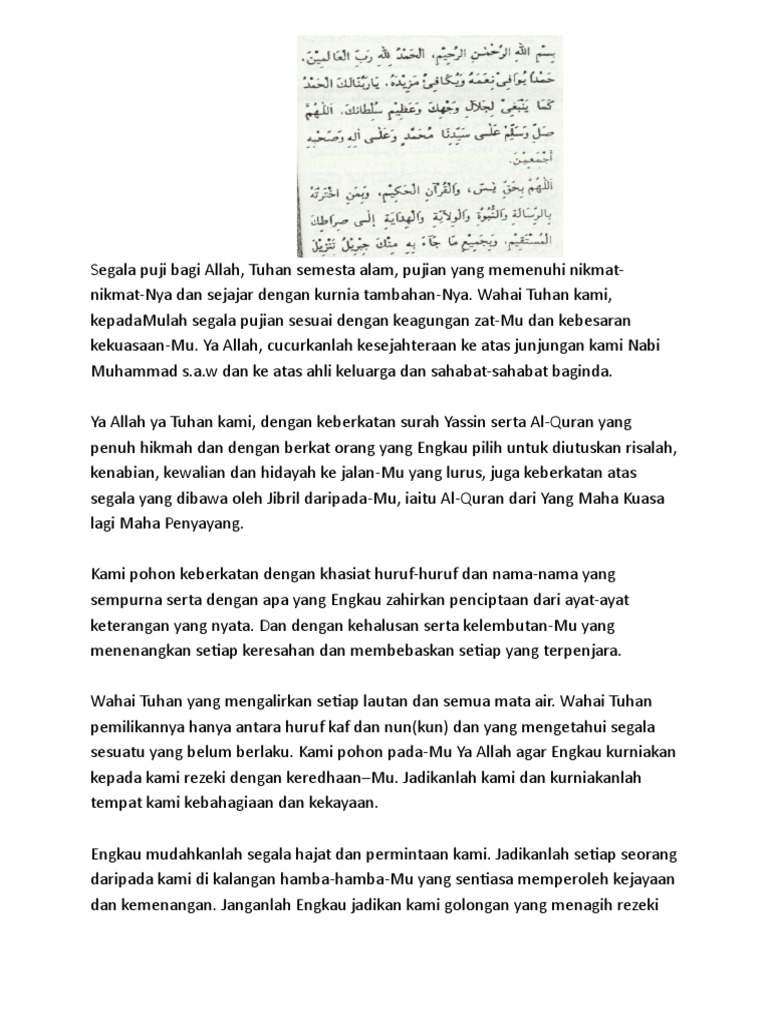 بِسْمِ اللهِ الرَّحْمٰنِ الرَّحِيْمِ، اَلْحَمْدُ لِلّٰهِ رَبِّ الْعَالَمِيْنَ،
حَمْدًا يُوَافِيْ نِعَمَهُ وَيُكَافِئُ مَزِيْدَهُ. يَارَبَّنَالَكَ الْحَمْدُ
كَمَا يَنْبَغِيْ لِجَلَالِ وَجْهِكَ وَعَظِيْمِ سُلْطَانِكَ. اَللّٰهُمَّ
صَلِّ وَسَلِّمْ عَلَـى سَيِّدِنَا مُحَمَّدٍ وَعَلَـى اٰلِهِ وَصَحْبِهِ
أَجْمَعِيْنَ.
اَللّٰهُمَّ بِحَقِّ يٰسٓ، وَالْقُرْآنِ الْحَكِيْمِ، وَبِمَنِ اخْتَرْتَهُ
بِالرِّسَالَةِ وَالنُّبُوَّةِ وَالْوِلَايَةِ وَالْهِدَايَةِ إِلَـى صِرَاطِكَ
الْمُسْتَقِيْمِ، وَبِجَمِيْعِ مَا جَآءَ بِهِ مِنْكَ جِبْرِيْلُ تَنْزِيْلَ
Segala puji bagi Allah, Tuhan semesta alam, pujian yang memenuhi nikmat-
nikmat-Nya dan sejajar dengan kurnia tambahan-Nya. Wahai Tuhan kami,
kepadaMulah segala pujian sesuai dengan keagungan zat-Mu dan kebesaran
kekuasaan-Mu. Ya Allah, cucurkanlah kesejahteraan ke atas junjungan kami Nabi
Muhammad s.a.w dan ke atas ahli keluarga dan sahabat-sahabat baginda.
Ya Allah ya Tuhan kami, dengan keberkatan surah Yassin serta Al-Quran yang
penuh hikmah dan dengan berkat orang yang Engkau pilih untuk diutuskan risalah,
kenabian, kewalian dan hidayah ke jalan-Mu yang lurus, juga keberkatan atas
segala yang dibawa oleh Jibril daripada-Mu, iaitu Al-Quran dari Yang Maha Kuasa
lagi Maha Penyayang.
Kami pohon keberkatan dengan khasiat huruf-huruf dan nama-nama yang
sempurna serta dengan apa yang Engkau zahirkan penciptaan dari ayat-ayat
keterangan yang nyata. Dan dengan kehalusan serta kelembutan-Mu yang
menenangkan setiap keresahan dan membebaskan setiap yang terpenjara.
Wahai Tuhan yang mengalirkan setiap lautan dan semua mata air. Wahai Tuhan
pemilikannya hanya antara huruf kaf dan nun(kun) dan yang mengetahui segala
sesuatu yang belum berlaku. Kami pohon pada-Mu Ya Allah agar Engkau kurniakan
kepada kami rezeki dengan keredhaan–Mu. Jadikanlah kami dan kurniakanlah
tempat kami kebahagiaan dan kekayaan.
Engkau mudahkanlah segala hajat dan permintaan kami. Jadikanlah setiap seorang
daripada kami di kalangan hamba-hamba-Mu yang sentiasa memperoleh kejayaan
dan kemenangan. Janganlah Engkau jadikan kami golongan yang menagih rezeki